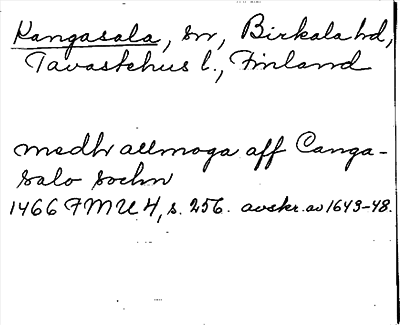 Kangasala, sn, Birkala hd,
Tavastehus l., Finland
medh allmoga aff Canga-
salo sochn
1466 FMU 4, s. 256. avskr. av 1643-48.